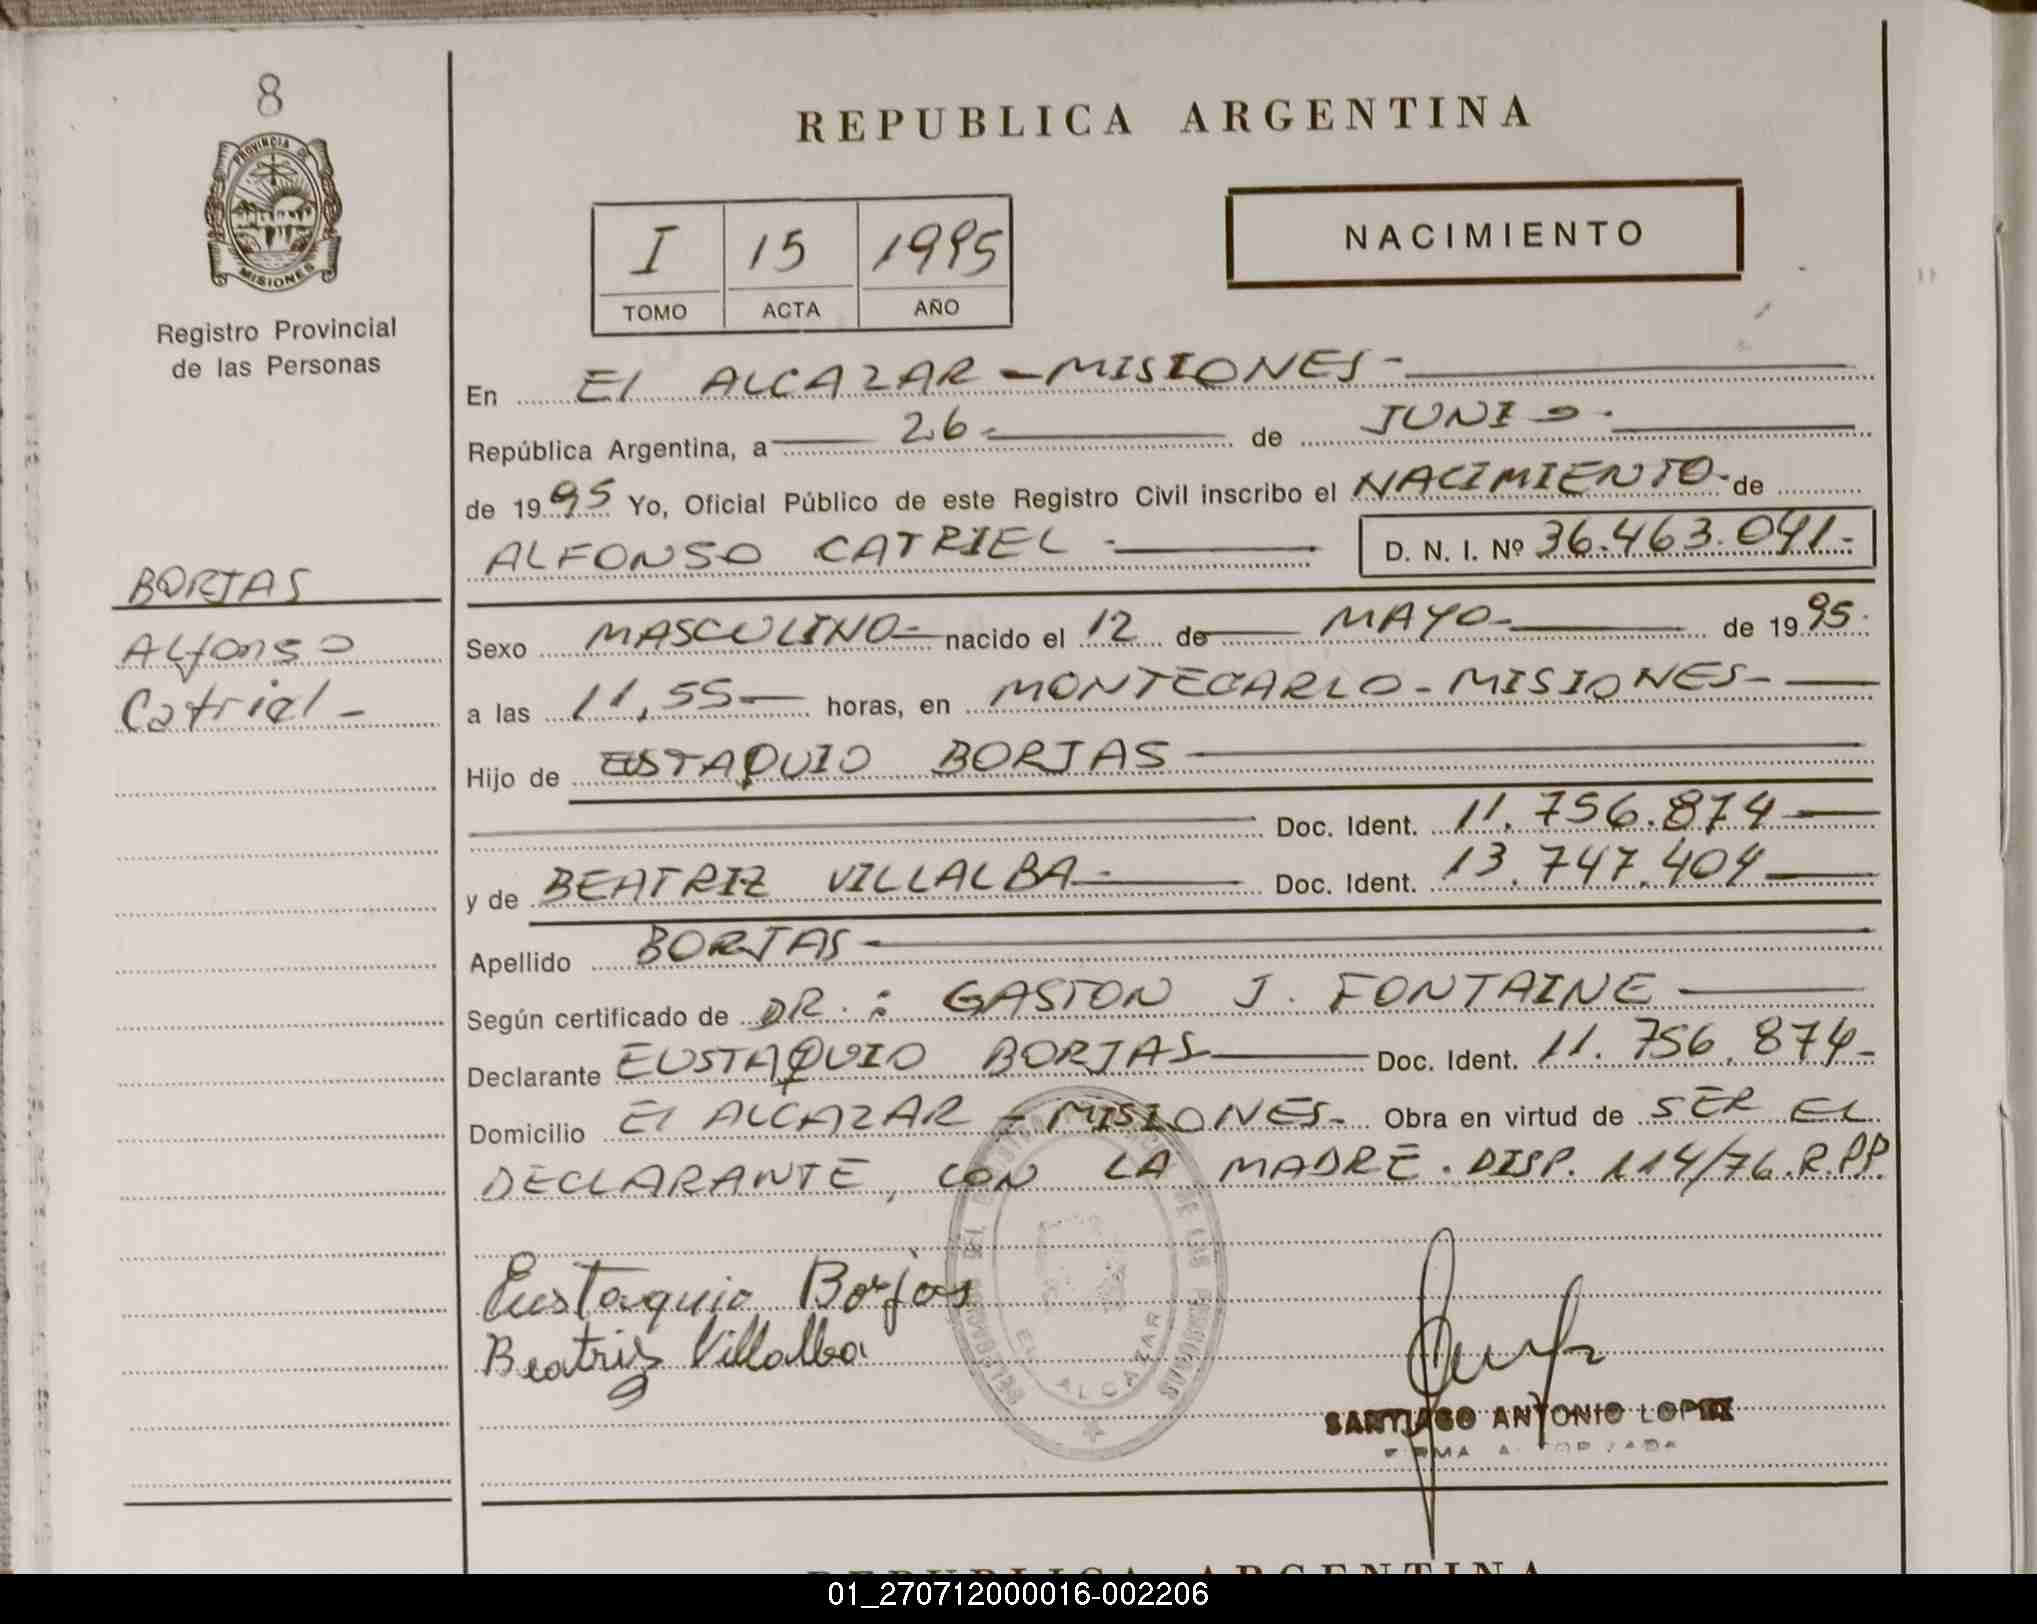 8
PROVINCIA DE
MISIONES
Registro Provincial
de las Personas
BORJAS
Alfonso
Catriel -
REPUBLICA ARGENTINA
NACIMIENTO
I 15 1995
TOMO ACTA AÑO
En El ALCAZAR - MISIONES -
República Argentina, a 26 - de JUNIO.
de 1995 Yo, Oficial Público de este Registro Civil inscribo el NACIMIENTO - de
ALFONSO CATRIEL - D. N. I. Nº 36.463.041.-
Sexo MASCULINO - nacido el 12 de MAYO - de 1995.
a las 11,55 - horas, en MONTECARLO - MISIONES -
Hijo de EUSTAQUIO BORJAS
Doc. Ident. 11.756.874
y de BEATRIZ VILLALBA - Doc. Ident. 13.747.404
Apellido BORJAS
Según certificado de DR.: GASTON J. FONTAINE
Declarante EUSTAQUIO BORJAS Doc. Ident. 11.756.874 -
Domicilio El ALCAZAR - MISIONES - Obra en virtud de SER EL
DECLARANTE, CON LA MADRE. DISP. 114/76. R.PP.
Eustaquio Borjas
Beatriz Villalba
EL ALCAZAR
SANTIAGO ANTONIO LOPEZ
FIRMA AUTORIZADA
REPUBLICA ARGENTINA
01_270712000016-002206